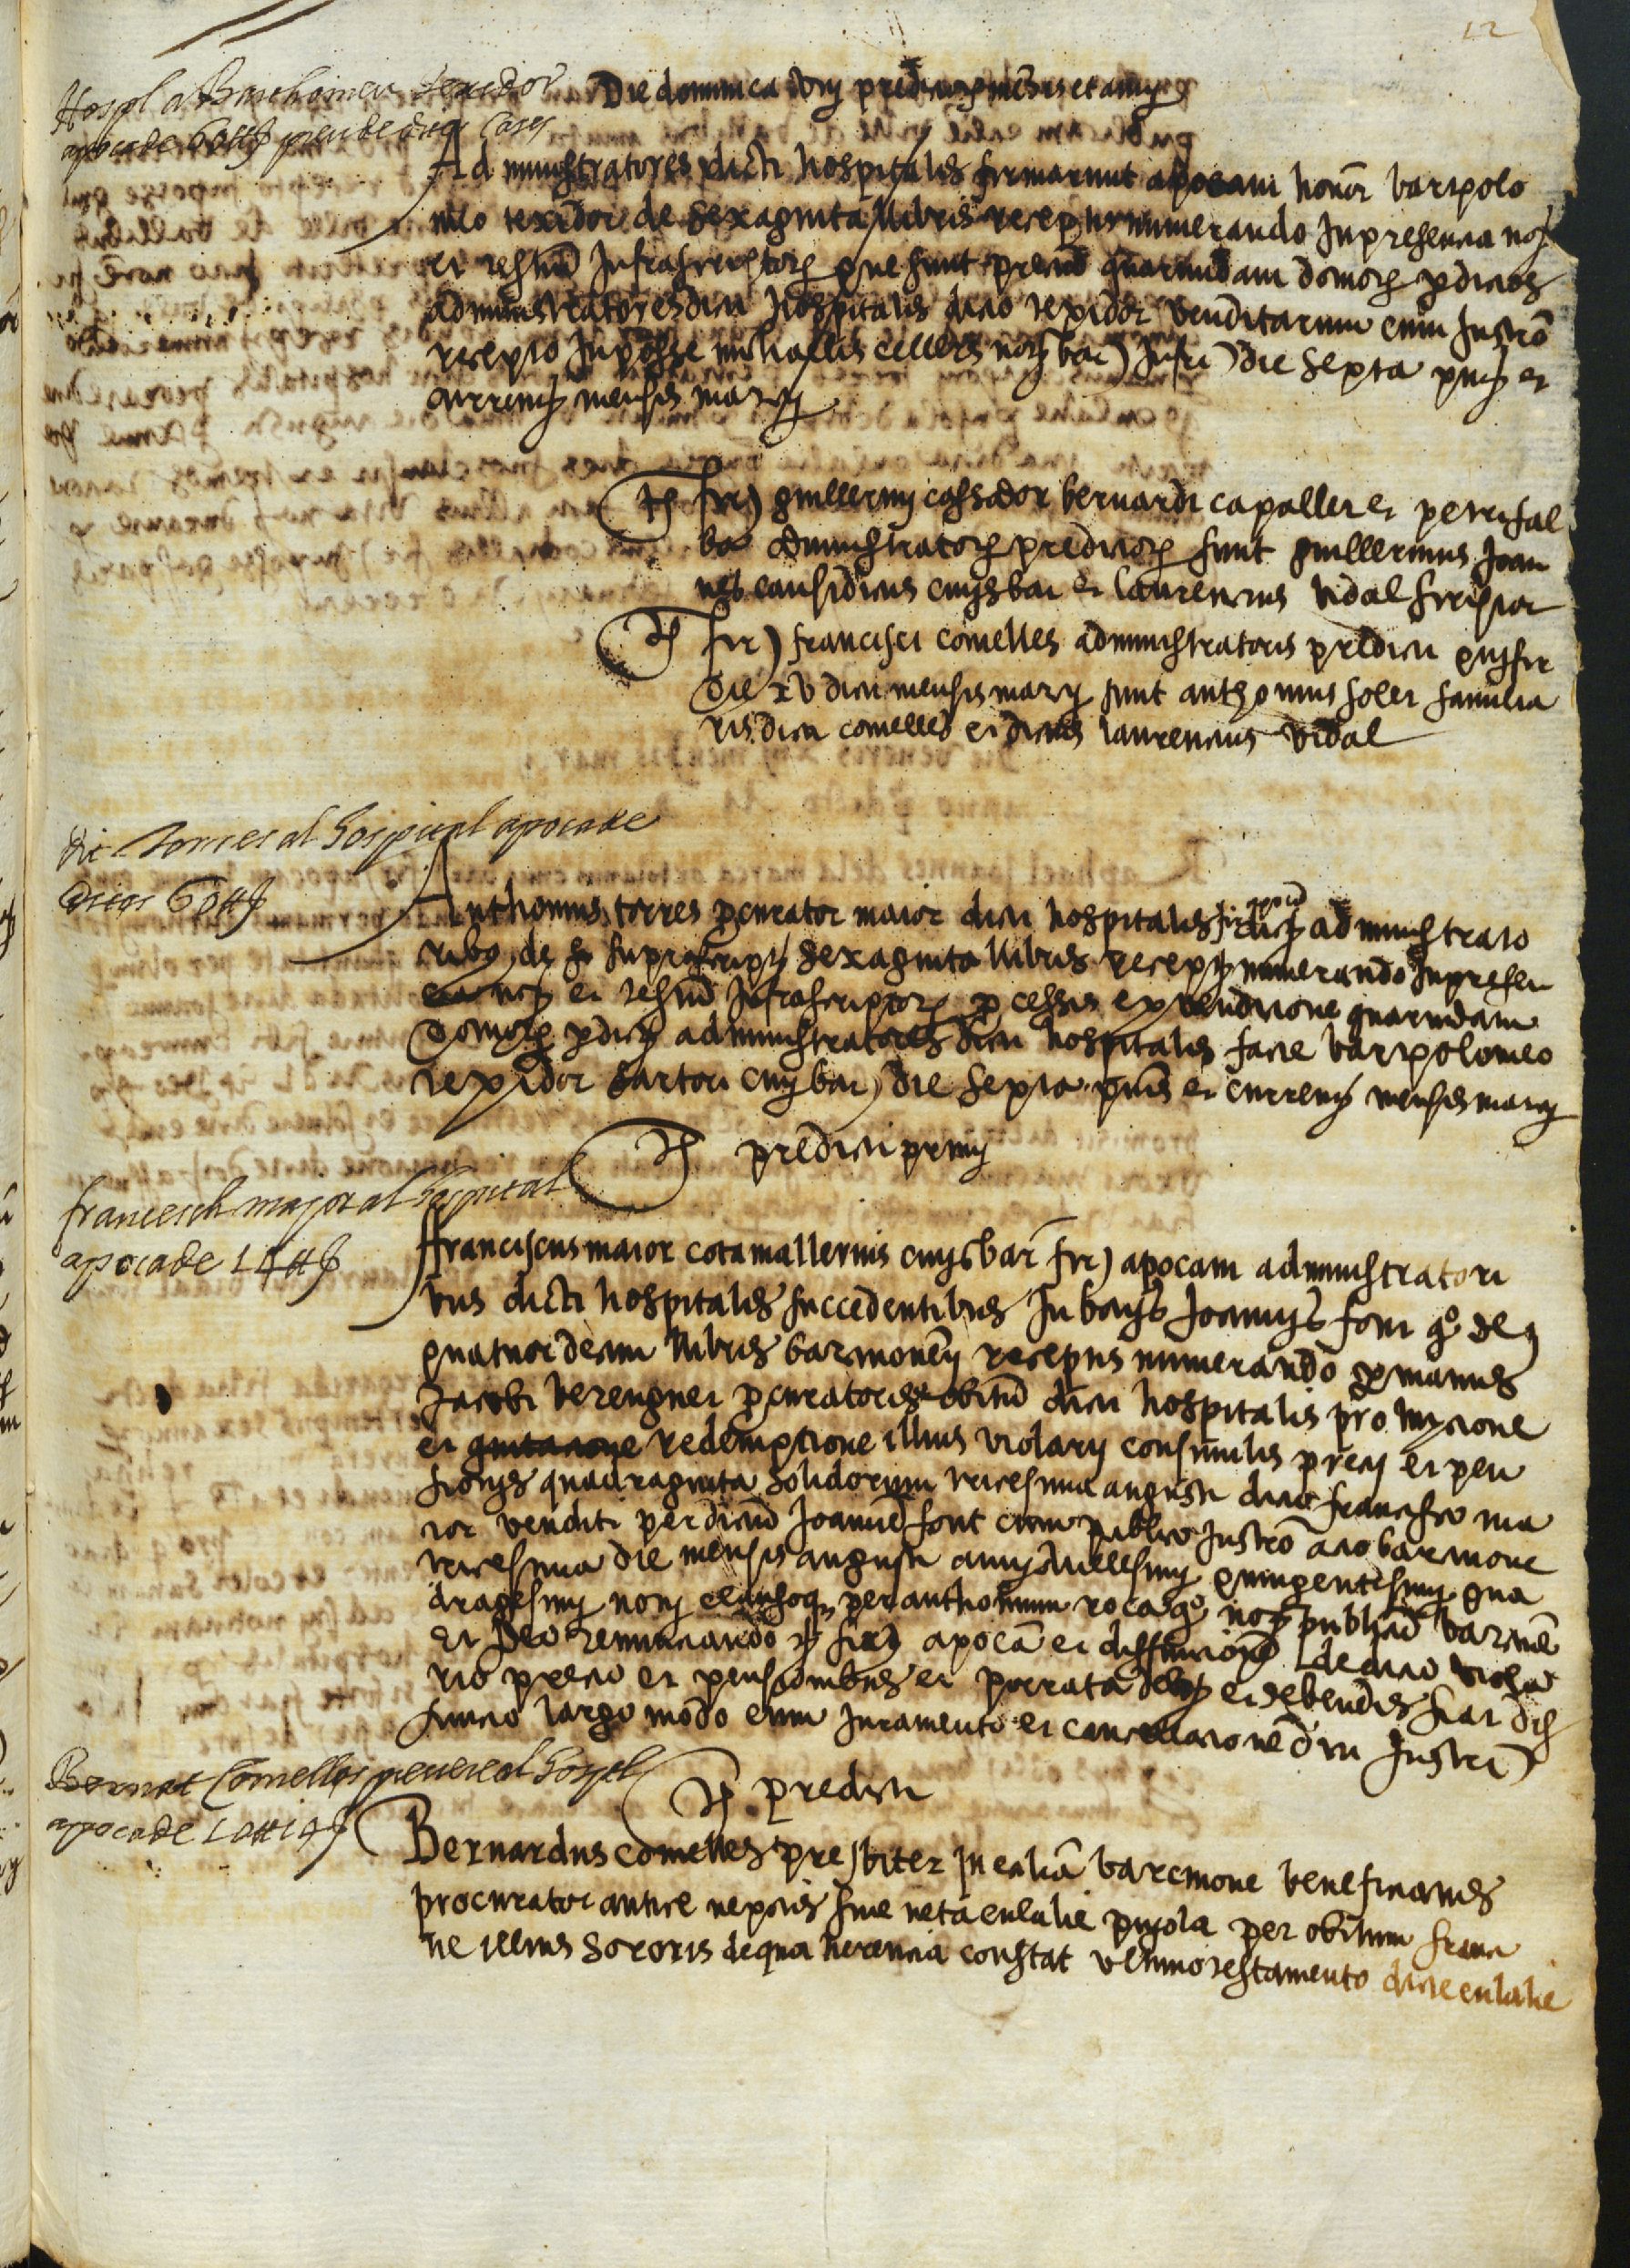 12
Hospl a Barthomeu Texedor
apoca de 60 ₶ preu de dites cases
Die dominica viij predictorum mensis et anni
Administratores dicti hospitalis firmarunt apocam honor bartolo
meo texidor de sexaginta libris receptis numerando In presencia noty
et testium Infrascriptorum que sunt precium quarundam domorum per dictos
administratores dicti hospitalis dicto texidor venditarum cum Instro
recepto In posse michaellis cellers noty bar) Infr) die septa pntis et
currentis mensis marcij
Ts fir) guillermi cassador bernardi capaller et petri fal
bo administratorum predictorum sunt guillermus Joan
nes causidicus civis bar et laurencius vidal scriptor
Ts fir) francisci comelles administratoris predicti qui fir
die xv dicti mensis marcij sunt anthonius soler familia
ris dicti comelles et dictus laurencius vidal
dit Torres al hospital apoca de
dites 60 ₶
Anthonius torres procurator maior dicti hospitalis fir apocam dictis administrato
ribus de suprascriptis sexaginta libris receptis numerando In presen
cia noty et testium Infrascriptorum processis ex vendicione quarundam
domorum per dictos administratores dicti hospitalis facte bartolomeo
texidor sartori civi bar) die septa pntis et currentis mensis marcij
Ts predicti primi
francesch major al hospital
apoca de 14 ₶
Franciscus maior cotamallerius civis bar fir) apocam administratori
bus dicti hospitalis succedentibus In bonis Joannis font qo de
quatuordecim libris barcinonen receptis numerando per manus
Jacobi berenguer procuratoris obituum dicti hospitalis pro luycione
et quitacione redemptione illius violarij consimilis precij et pen
sionis quadraginta solidorum vicesima augusti dicto francisco ma
ior venditi per dictum Joannem font cum publico Instro acto barcinone
vicesima die mensis augusti anni Millesimi quingentesimi qua
dragesimi noni clausoque per anthonium roca qo noty publicum barcinone
Et Ideo renunciando etc fir) apoca et diffinicionem de dicto viola
rio precio et pensionibus et porrata debitis et debendis fiat diff
finicio largo modo cum Juramento et cancellacione dicti Instri)
Ts predicti
Bernat Comelles prevere al hospl
apoca de 10 ₶ 19
Bernardus comelles presbiter In ecclia barcinone beneficiatus
procurator antice nexovis sive neta eulalie pujola per obitum franci
ne illius sororis de qua herencia constat ultimo testamento dicte eulalie